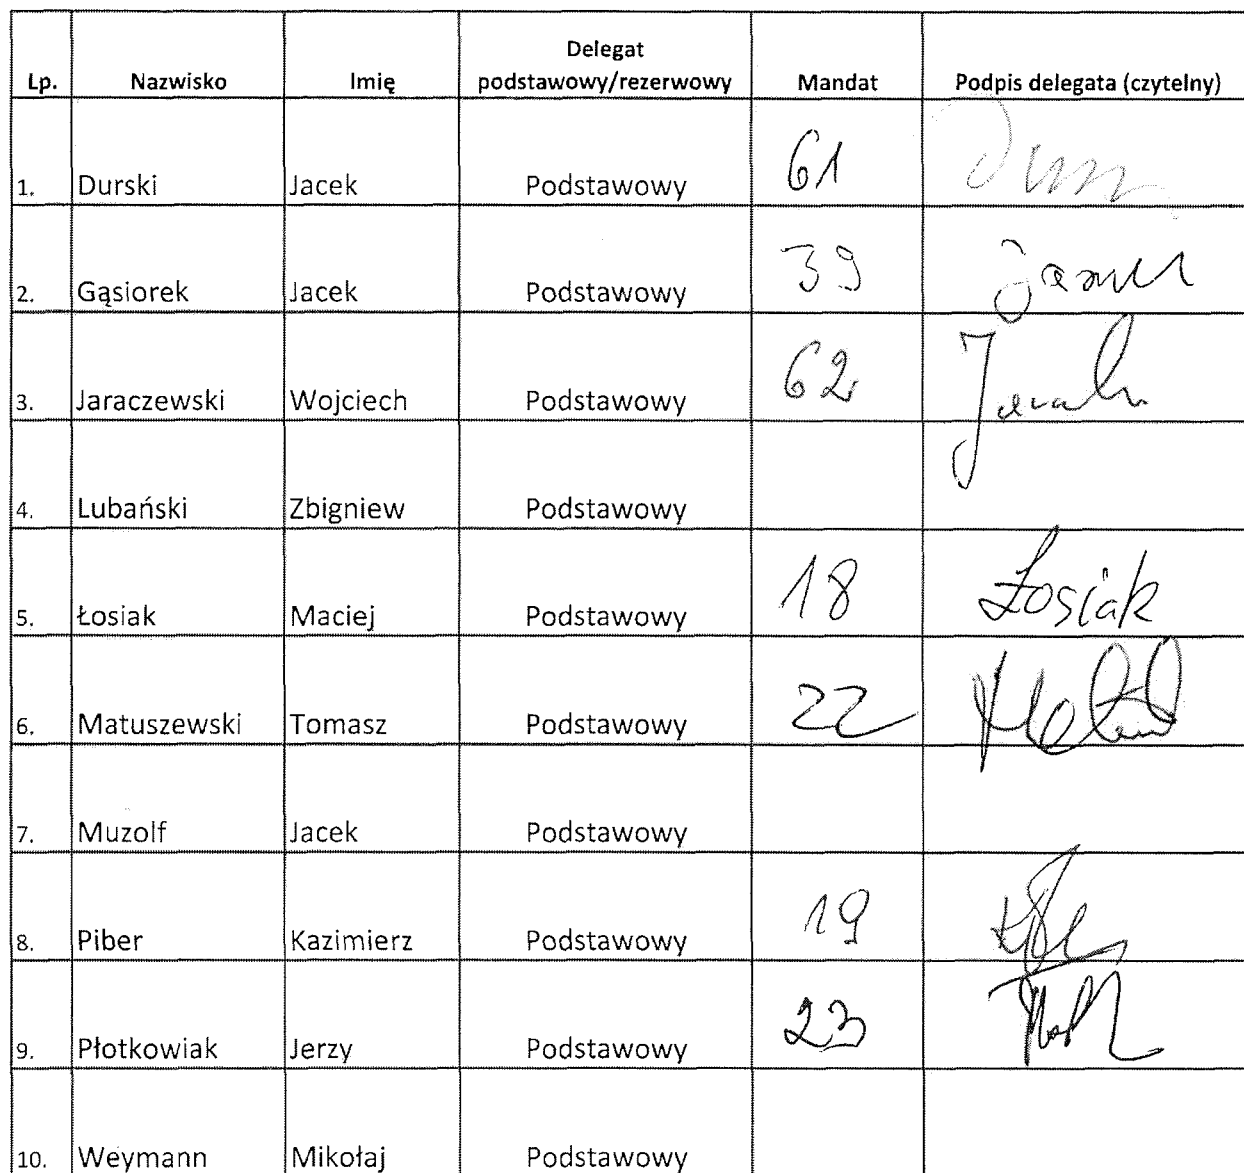 Lp. Nazwisko Imię Delegat podstawowy/rezerwowy Mandat Podpis delegata (czytelny)
1. Durski Jacek Podstawowy 61
2. Gąsiorek Jacek Podstawowy 39
3. Jaraczewski Wojciech Podstawowy 62
4. Lubański Zbigniew Podstawowy
5. Łosiak Maciej Podstawowy 18 Łosiak
6. Matuszewski Tomasz Podstawowy 22
7. Muzolf Jacek Podstawowy
8. Piber Kazimierz Podstawowy 19
9. Płotkowiak Jerzy Podstawowy 23
10. Weymann Mikołaj Podstawowy